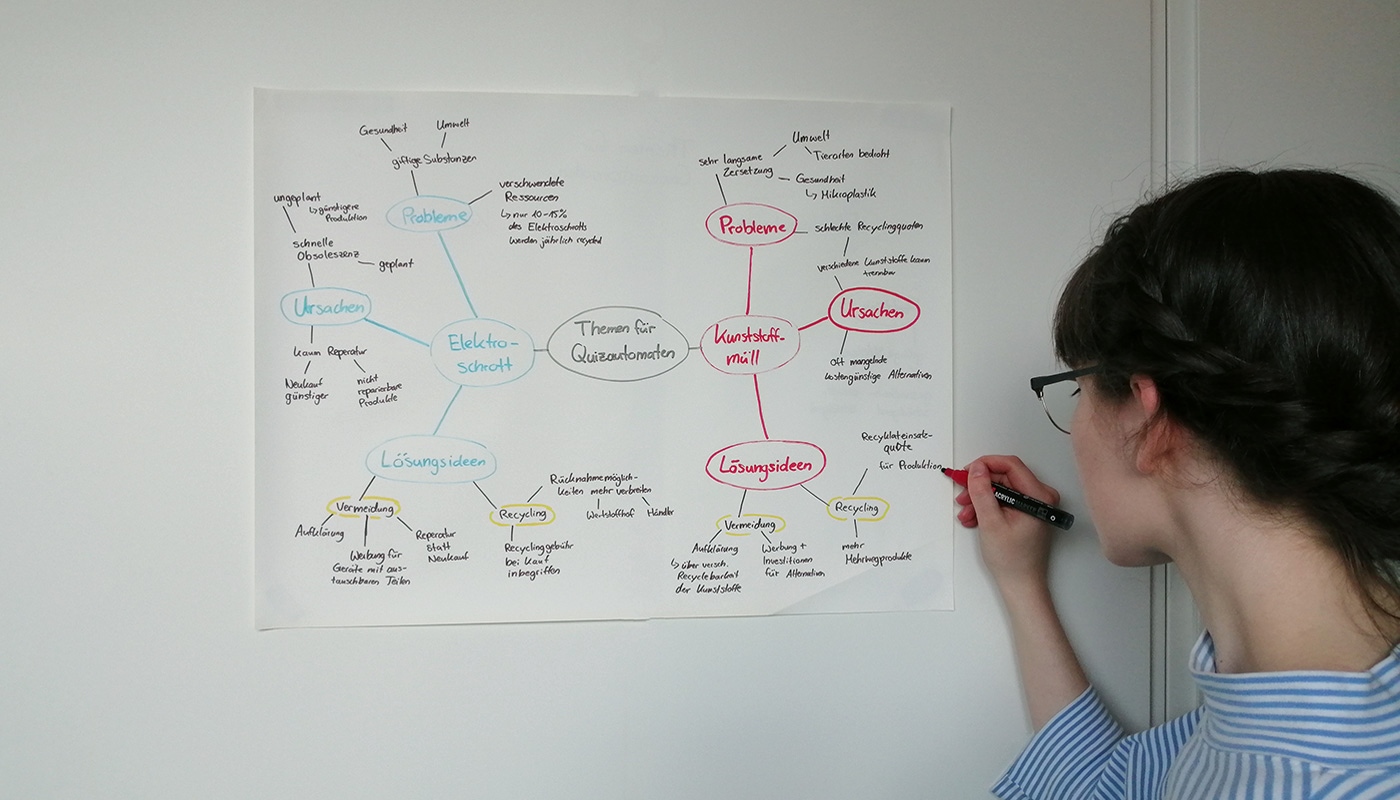 Themen für
Quizautomaten
Elektro-
schrott
Probleme
giftige Substanzen
Gesundheit
Umwelt
verschwendete
Ressourcen
↳ nur 10-15%
des Elektroschrotts
werden jährlich recycled
Ursachen
schnelle
Obsoleszenz
ungeplant
↳ günstigere
Produktion
geplant
kaum Reperatur
Neukauf
günstiger
nicht
reparierbare
Produkte
Lösungsideen
Vermeidung
Aufklärung
Werbung für
Geräte mit aus-
tauschbaren Teilen
Reperatur
statt
Neukauf
Recycling
Rücknahmemöglich-
keiten mehr verbreiten
Wertstoffhof
Händler
Recyclinggebühr
bei Kauf
inbegriffen
Kunststoff-
müll
Probleme
sehr langsame
Zersetzung
Umwelt
Tierarten bedroht
Gesundheit
↳ Mikroplastik
schlechte Recyclingquoten
verschiedene Kunststoffe kaum
trennbar
Ursachen
Oft mangelnde
kostengünstige Alternativen
Lösungsideen
Vermeidung
Aufklärung
↳ über versch.
Recyclebarkeit
der Kunststoffe
Werbung +
Investitionen
für Alternativen
Recycling
Recyklateinsatz-
quote
für Produktion
mehr
Mehrwegprodukte
ACRYLIC